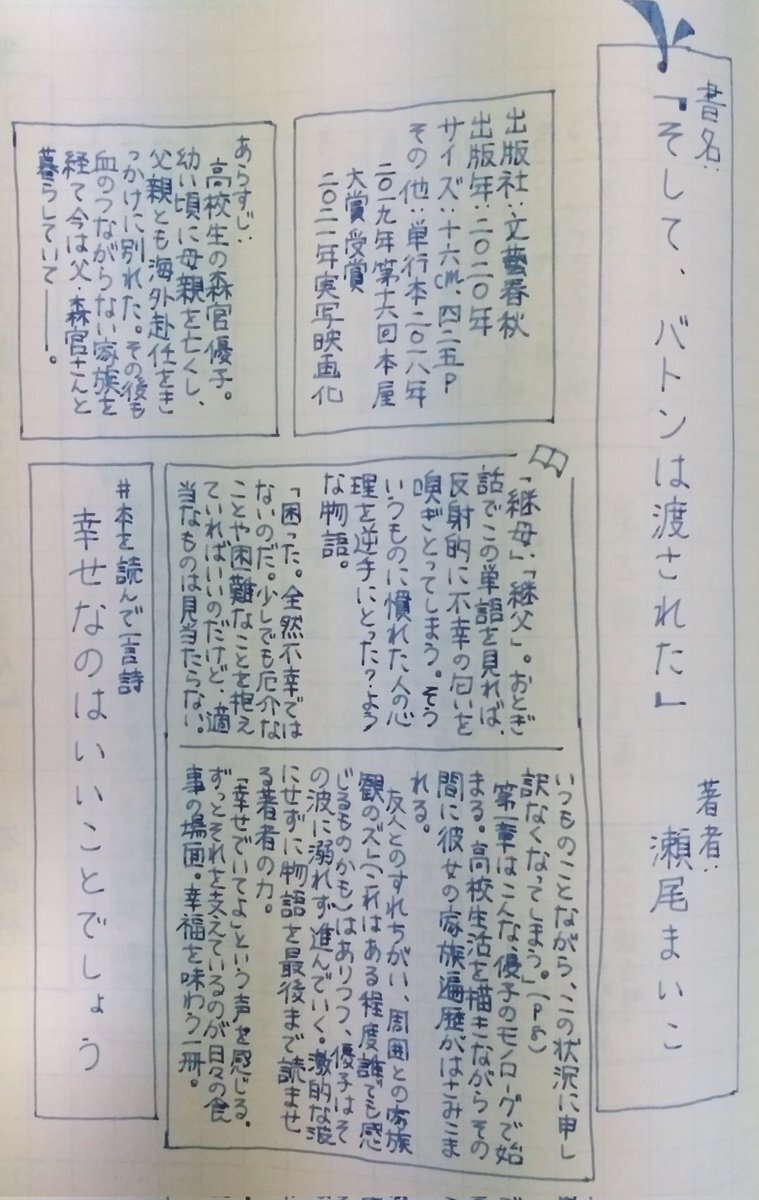 書名:
『そして、バトンは渡された』
著者:
瀬尾まいこ
出版社:文藝春秋
出版年:二〇二〇年
サイズ:十六cm、四二五P
その他:単行本二〇一八年
二〇一九年第十六回本屋
大賞受賞
二〇二一年実写映画化
あらすじ:
高校生の森宮優子。
幼い頃に母親を亡くし、
父親とも海外赴任をき
っかけに別れた。その後も
血のつながらない家族を
経て今は父・森宮さんと
暮らしていて――。
「継母」、「継父」。おとぎ
話でこの単語を見れば、
反射的に不幸の匂いを
嗅ぎとってしまう。そう
いうものに慣れた人の心
理を逆手にとった?よう
な物語。
「困った。全然不幸では
ないのだ。少しでも厄介な
ことや困難なことを抱え
ていればいいのだけど、適
当なものは見当たらない。
いつものことながら、この状況に申し
訳なくなってしまう。」(P8)
第一章はこんな優子のモノローグで始
まる。高校生活を描きながらその
間に彼女の家族遍歴がはさみこま
れる。
友人とのすれちがい、周囲との家族
観のズレ(これはある程度誰でも感
じるものかも)はありつつ、優子はそ
の波に溺れず進んでいく。激的な波
にせずに物語を最後まで読ませ
る著者の力。
「幸せでいてよ」という声を感じる。
ずっとそれを支えているのが日々の食
事の場面。幸福を味わう一冊。
#本を読んで一言詩
幸せなのはいいことでしょう